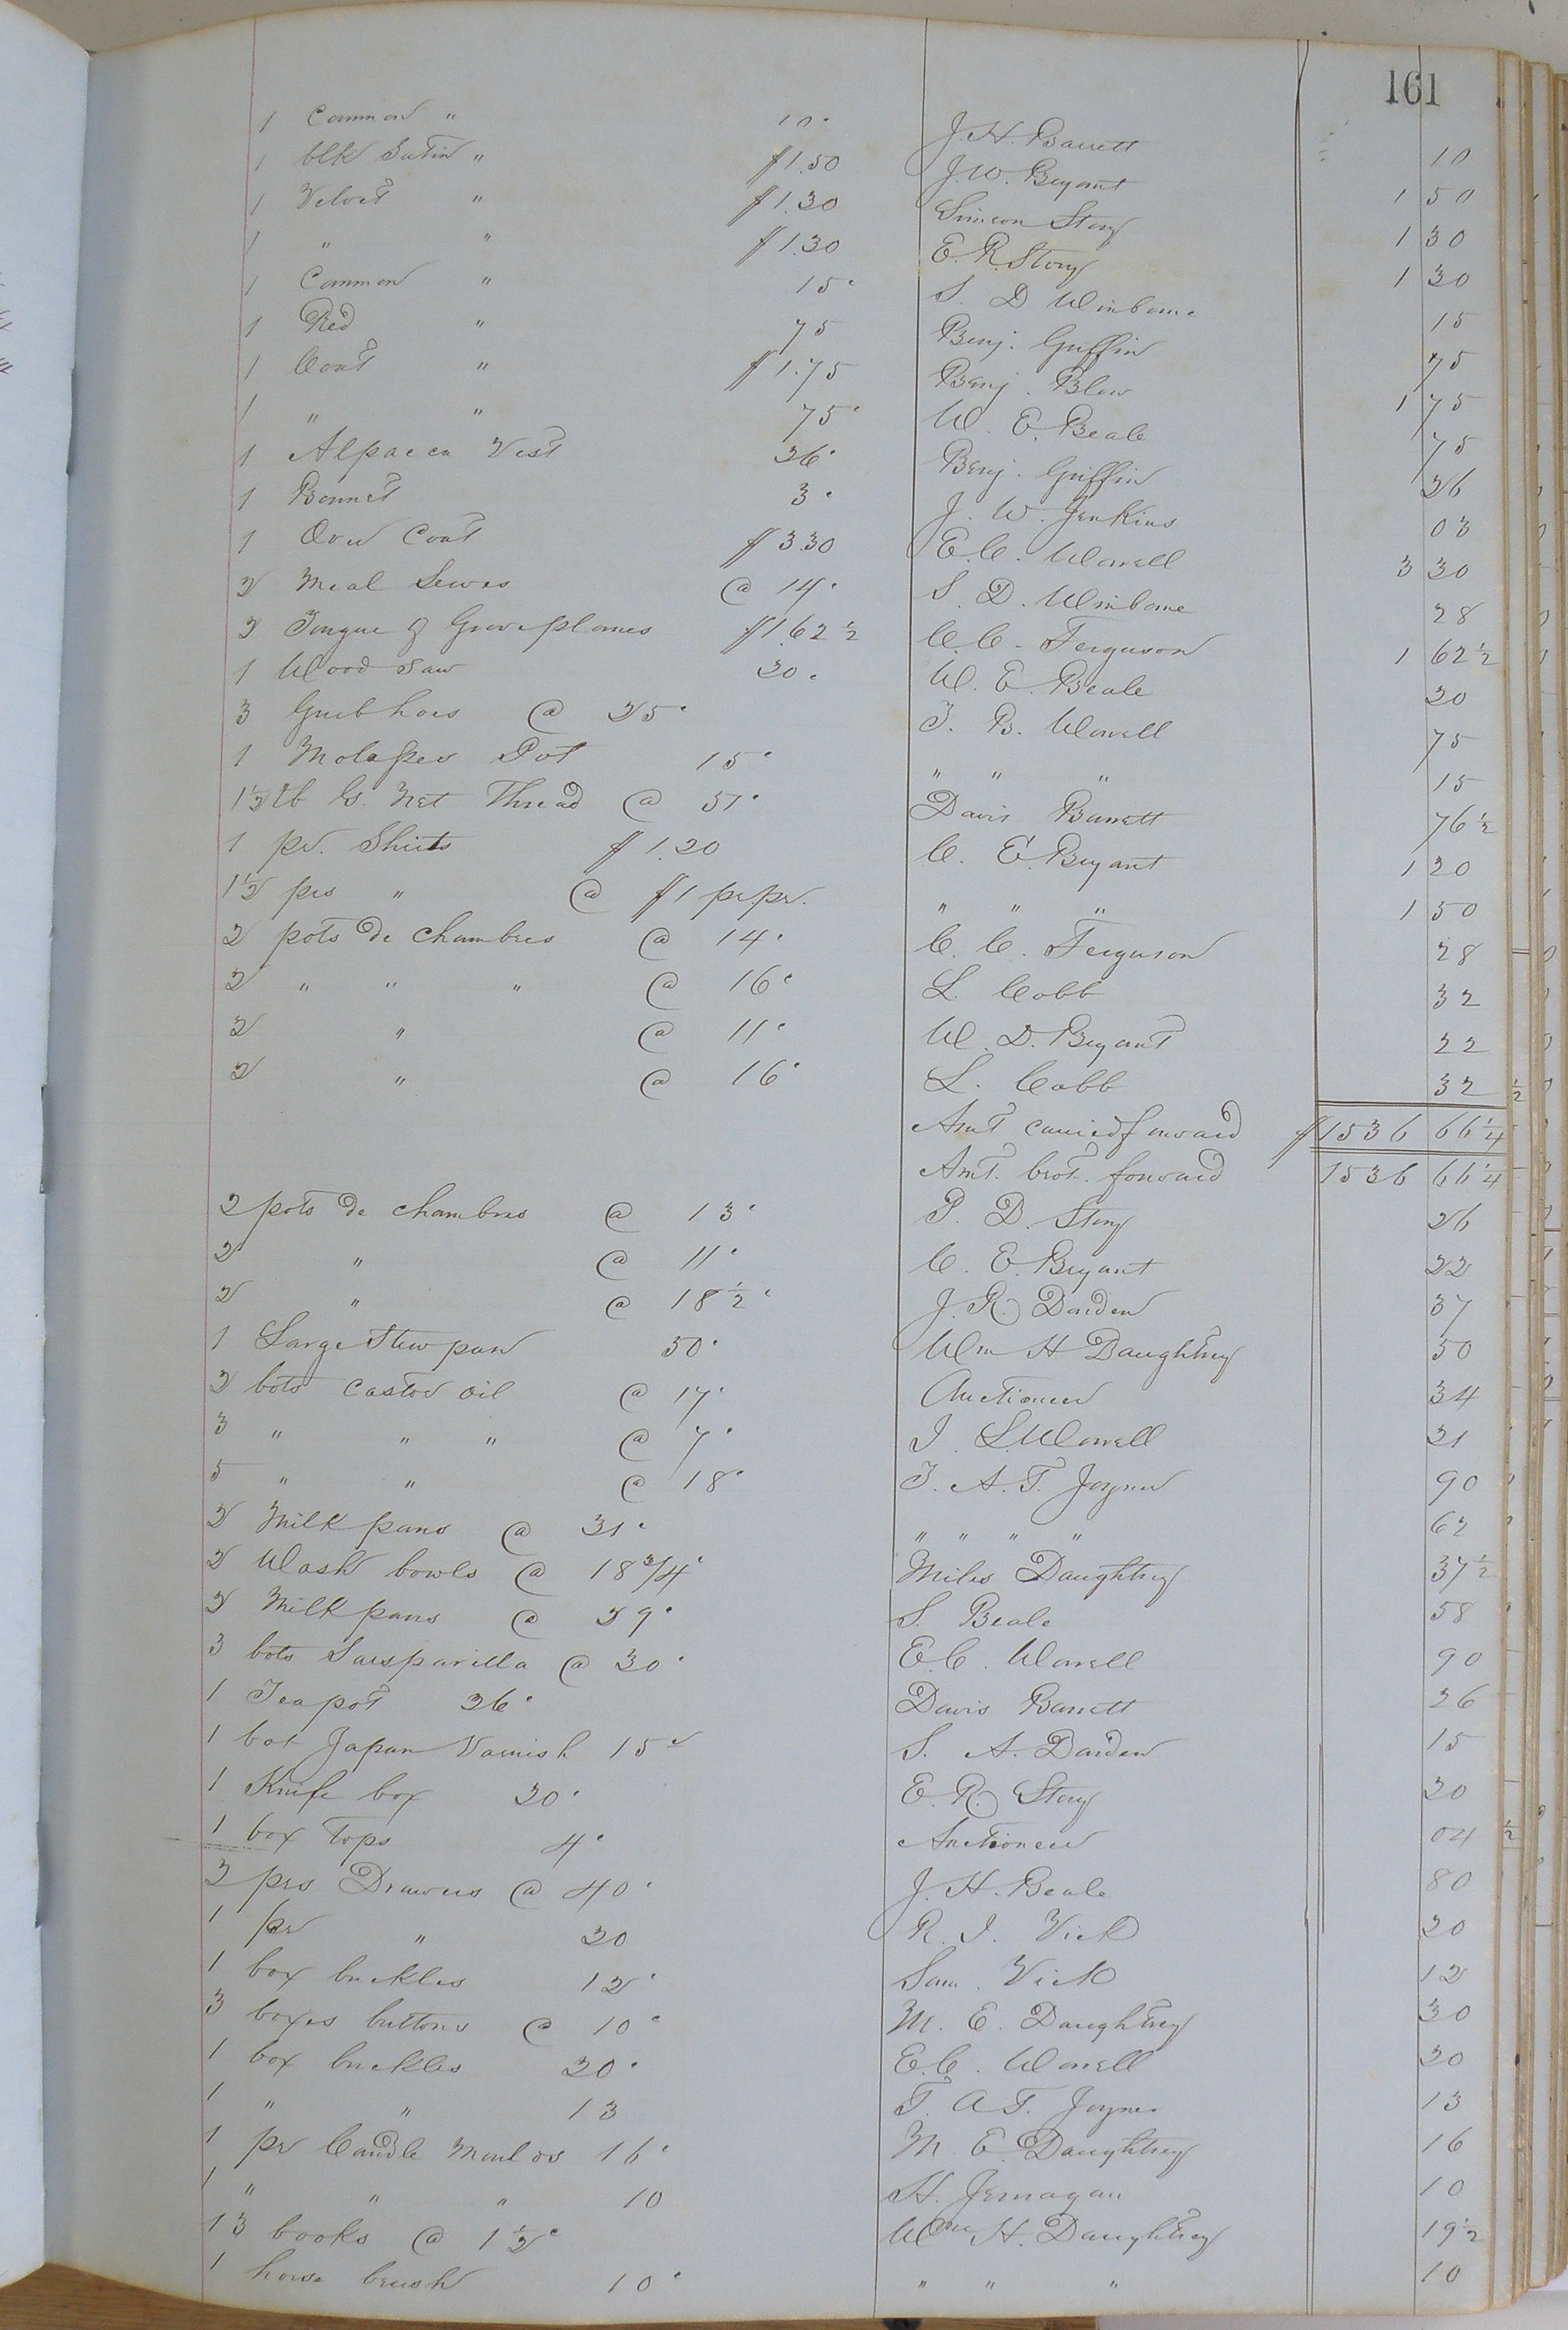 161
1 Common " 10c J. H. Barrett 10
1 blk Satin " $1.50 J. W. Bryant 1 50
1 Velvet " $1.30 Simeon Story 1 30
1 " " $1.30 E. R. Story 1 30
1 Common " 15c S. D Winborne 15
1 Red " 75 Benj. Griffin 75
1 Coat " $1.75 Benj. Blow 1 75
1 " " 75c W. E. Beale 75
1 Alpacca Vest 26c Benj. Griffin 26
1 Bonnet 3c J. W. Jenkins 03
1 Over Coat $3.30 E. C. Worrell 3 30
2 Meal Seives @ 14c S. D. Winborne 28
2 Tongue & Groveplanes $1.62 1/2 C. C. Ferguson 1 62 1/2
1 Wood Saw 20c W. E. Beale 20
3 Grubhoes @ 25c T. B. Worrell 75
1 Molasses Pot 15c " " " 15
1 1/2 lb G. Net Thread @ 51c Davis Barrett 76 1/2
1 pr. Shirts $1.20 C. E. Bryant 1 20
1 1/2 prs " @ $1 pr. pr. " " " 1 50
2 pots de chambres @ 14c C. C. Ferguson 28
2 " " " @ 16c L. Cobb 32
2 " @ 11c W. D. Bryant 22
2 " @ 16c L. Cobb 32
Amt carried forward $1536 66 1/4
Amt. brot. forward 1536 66 1/4
2 pots de chambres @ 13c P. D. Story 26
2 " @ 11c C. E. Bryant 22
2 " @ 18 1/2c J. R. Darden 37
1 Large Stew pan 50c Wm H Daughtrey 50
2 bots castor oil @ 17c Auctioneer 34
3 " " " @ 7c J. L. Worrell 21
5 " " @ 18c T. A. T. Joyner 90
2 Milk pans @ 31c " " " " 62
2 Wash bowls @ 18 3/4c Miles Daughtrey 37 1/2
2 Milk pans @ 29c S. Beale 58
3 bots Sarsparilla @ 30c E. C. Worrell 90
1 Tea pot 26c Davis Barrett 26
1 bot Japan Varnish 15c S. A. Darden 15
1 Knife box 20c E. R. Story 20
1 box Tops 4c Auctioneer 04
2 prs Drawers @ 40c J. H. Beale 80
1 pr " 20 R. J. Vick 20
1 box buckles 12c Sam. Vick 12
3 boxes buttons @ 10c M. E. Daughtrey 30
1 box buckles 20c E. C. Worrell 20
1 " " 13 T. A T. Joyner 13
1 pr Candle Moulds 16c M. E. Daughtrey 16
1 " " " 10 H. Jernagan 10
13 books @ 1 1/2c Wm H. Daughtrey 19 1/2
1 horse brush 10c " " " 10